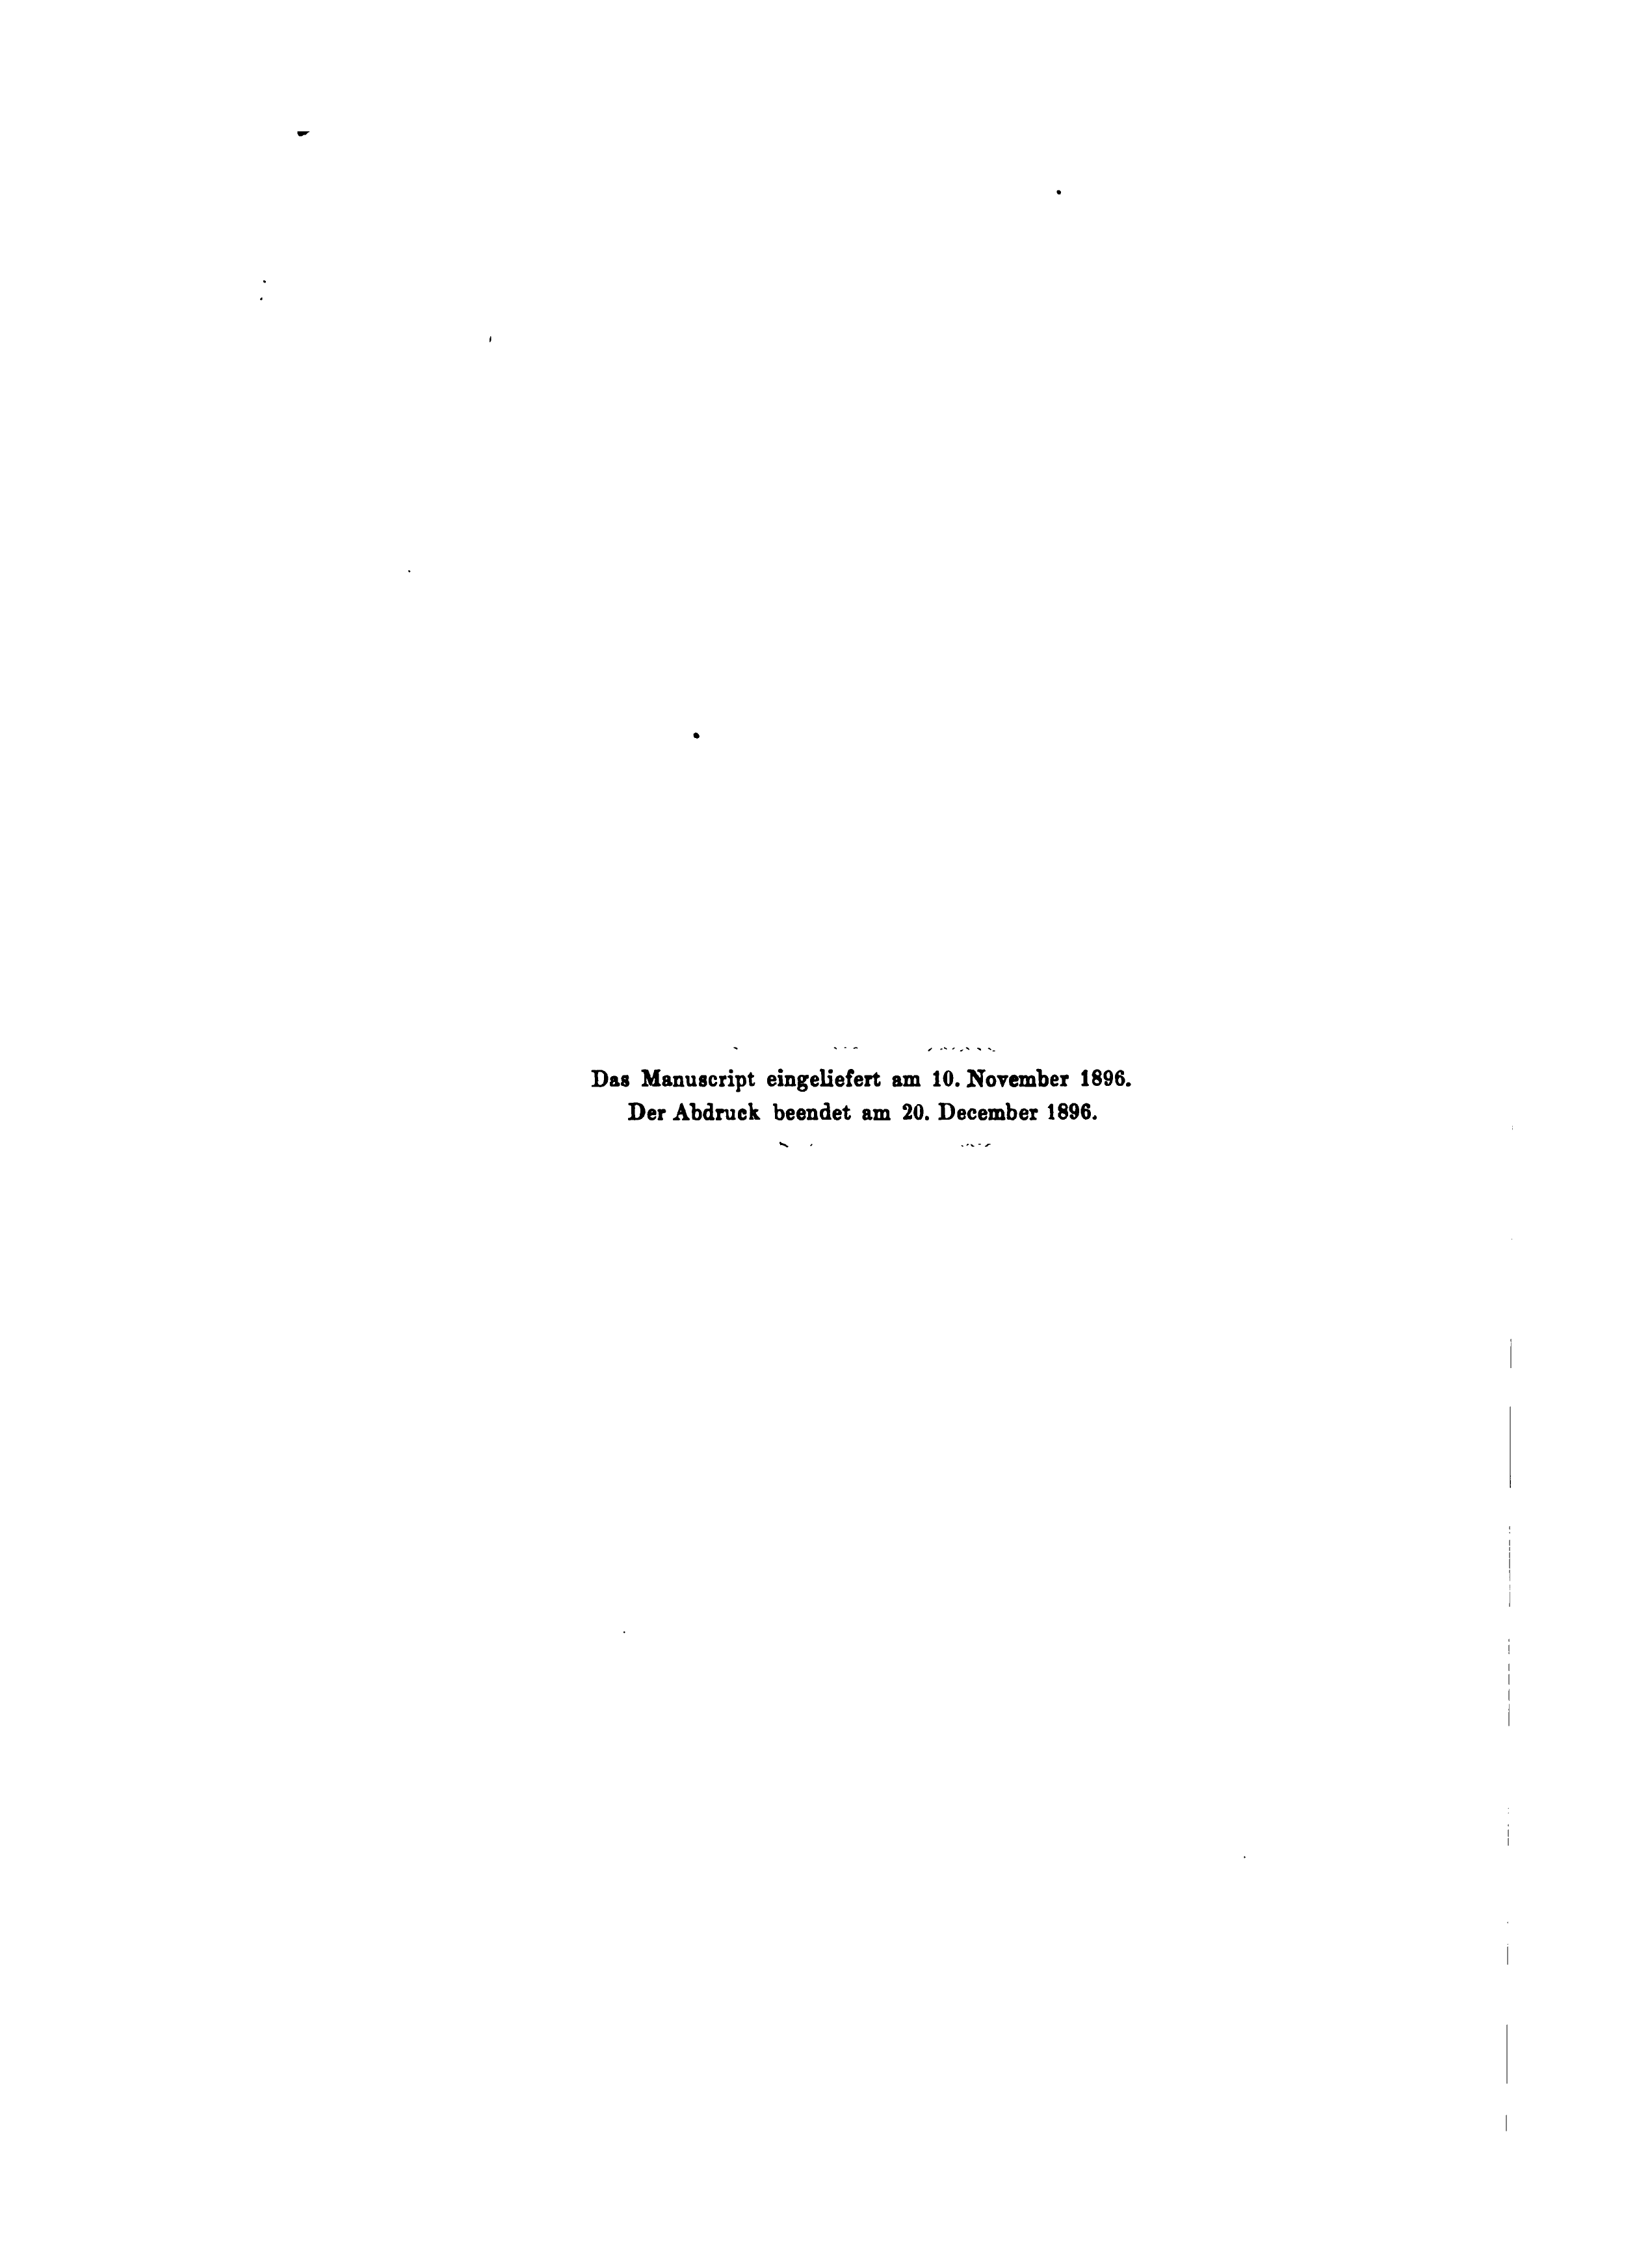 Das Manuscript eingeliefert am 10. November 1896.
Der Abdruck beendet am 20. December 1896.